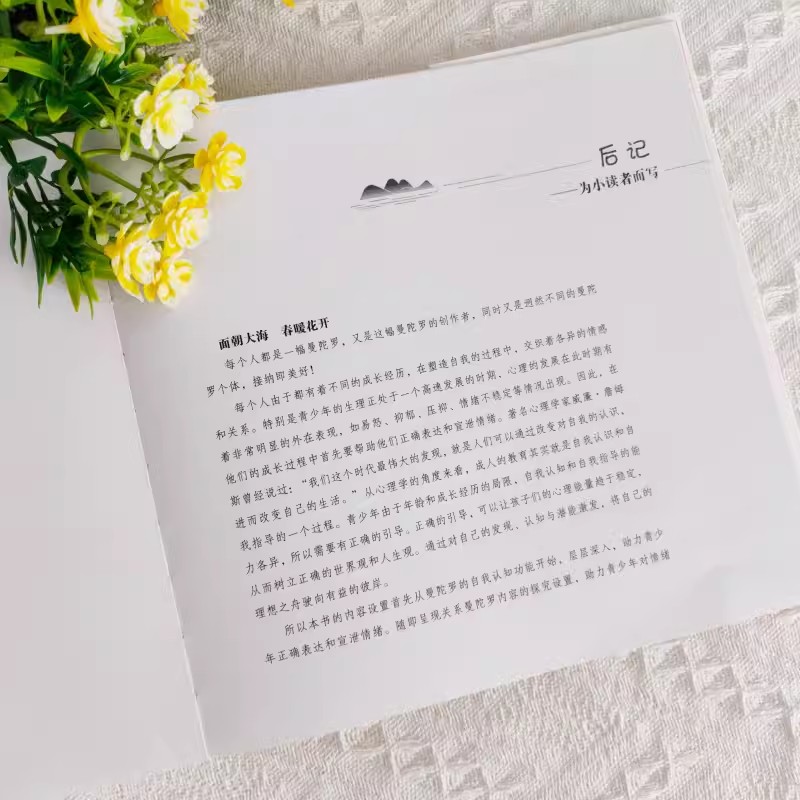 后记
——为小读者而写
面朝大海 春暖花开
每个人都是一幅曼陀罗，又是这幅曼陀罗的创作者，同时又是迥然不同的曼陀
罗个体，接纳即美好！
每个人由于都有着不同的成长经历，在塑造自我的过程中，交织着各异的情感
和关系。特别是青少年的生理正处于一个高速发展的时期，心理的发展在此时期有
着非常明显的外在表现，如易怒、抑郁、压抑、情绪不稳定等情况出现。因此，在
他们的成长过程中首先要帮助他们正确表达和宣泄情绪。著名心理学家威廉·詹姆
斯曾经说过：“我们这个时代最伟大的发现，就是人们可以通过改变对自我的认识，
进而改变自己的生活。”从心理学的角度来看，成人的教育其实就是自我认识和自
我指导的一个过程。青少年由于年龄和成长经历的局限，自我认知和自我指导的能
力各异，所以需要有正确的引导。正确的引导，可以让孩子们的心理能量趋于稳定，
从而树立正确的世界观和人生观。通过对自己的发现、认知与潜能激发，将自己的
理想之舟驶向有益的彼岸。
所以本书的内容设置首先从曼陀罗的自我认知功能开始，层层深入，助力青少
年正确表达和宣泄情绪。随即呈现关系曼陀罗内容的探究设置，助力青少年对情绪